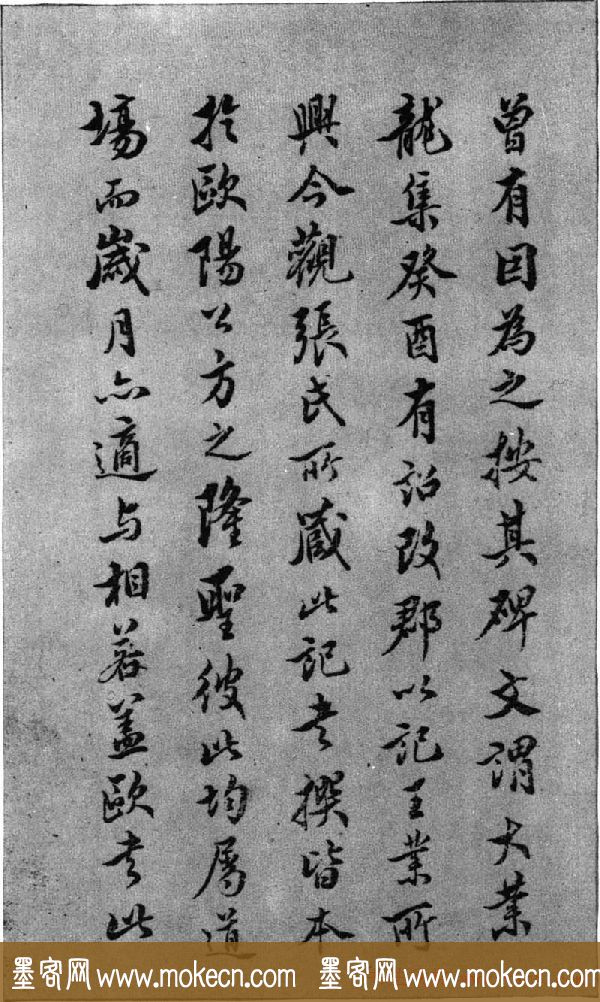 曾有因為之按其碑文謂大業
龍集癸酉有詔改郡以記王業所
興今觀張氏所藏此記書撰皆本
於歐陽公方之隆聖彼此均屬道
場而歲月亦適與相若蓋歐書此
墨客网 www.mokecn.com 墨客网 www.mokecn.com